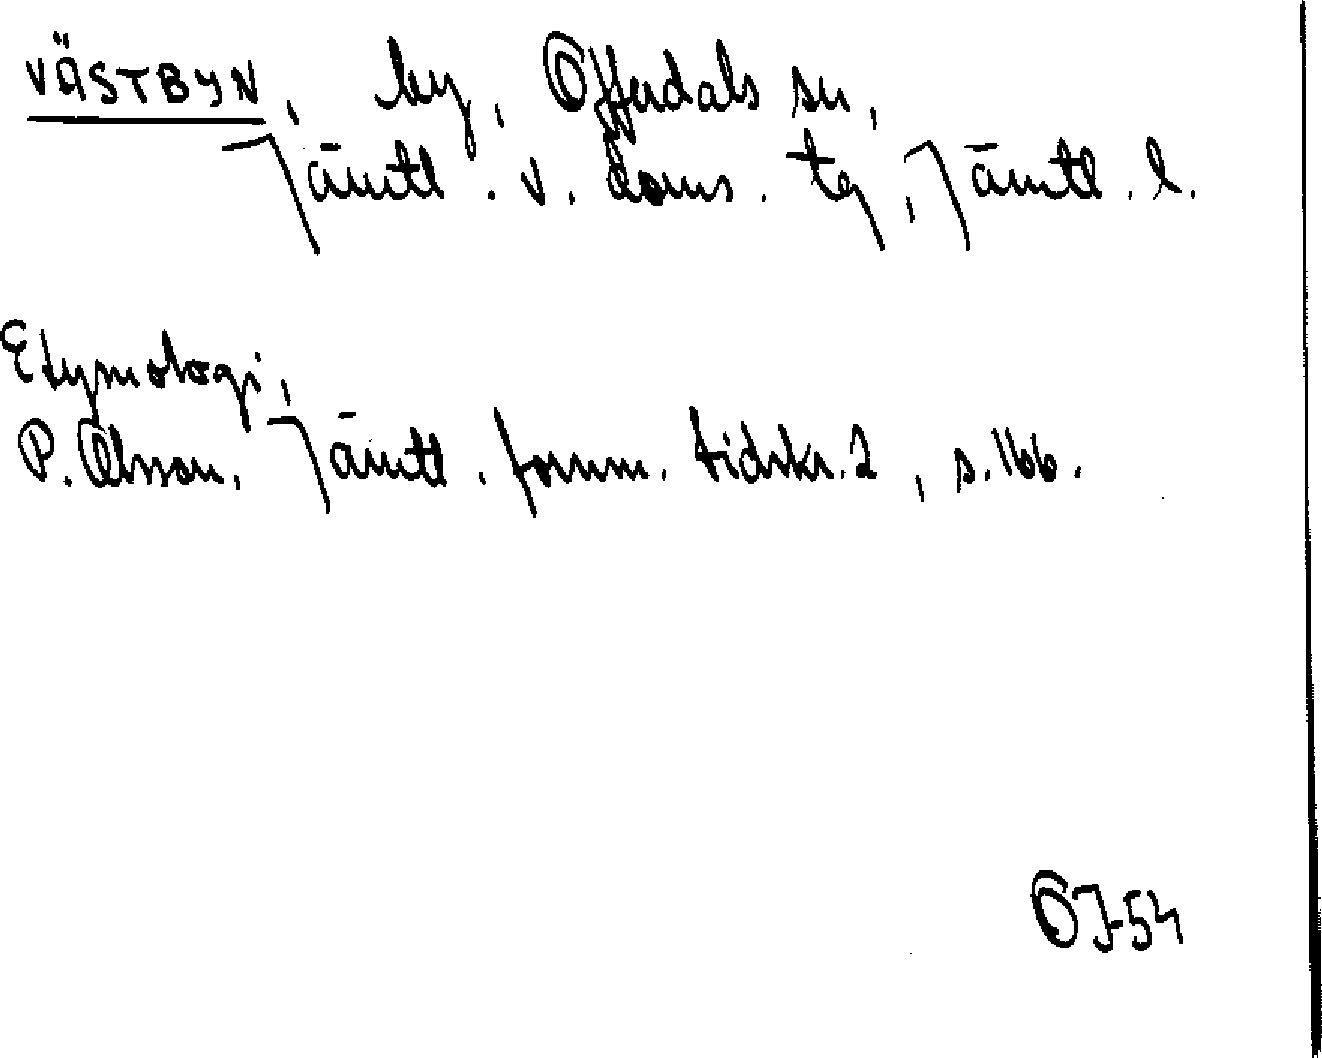 VÄSTBYN, by, Offerdals sn,
Jämtl. v. doms. tg, Jämtl. l.
Etymologi,
P. Olsson, Jämtl. fornm. tidskr. 2, s. 166.
OJ-54